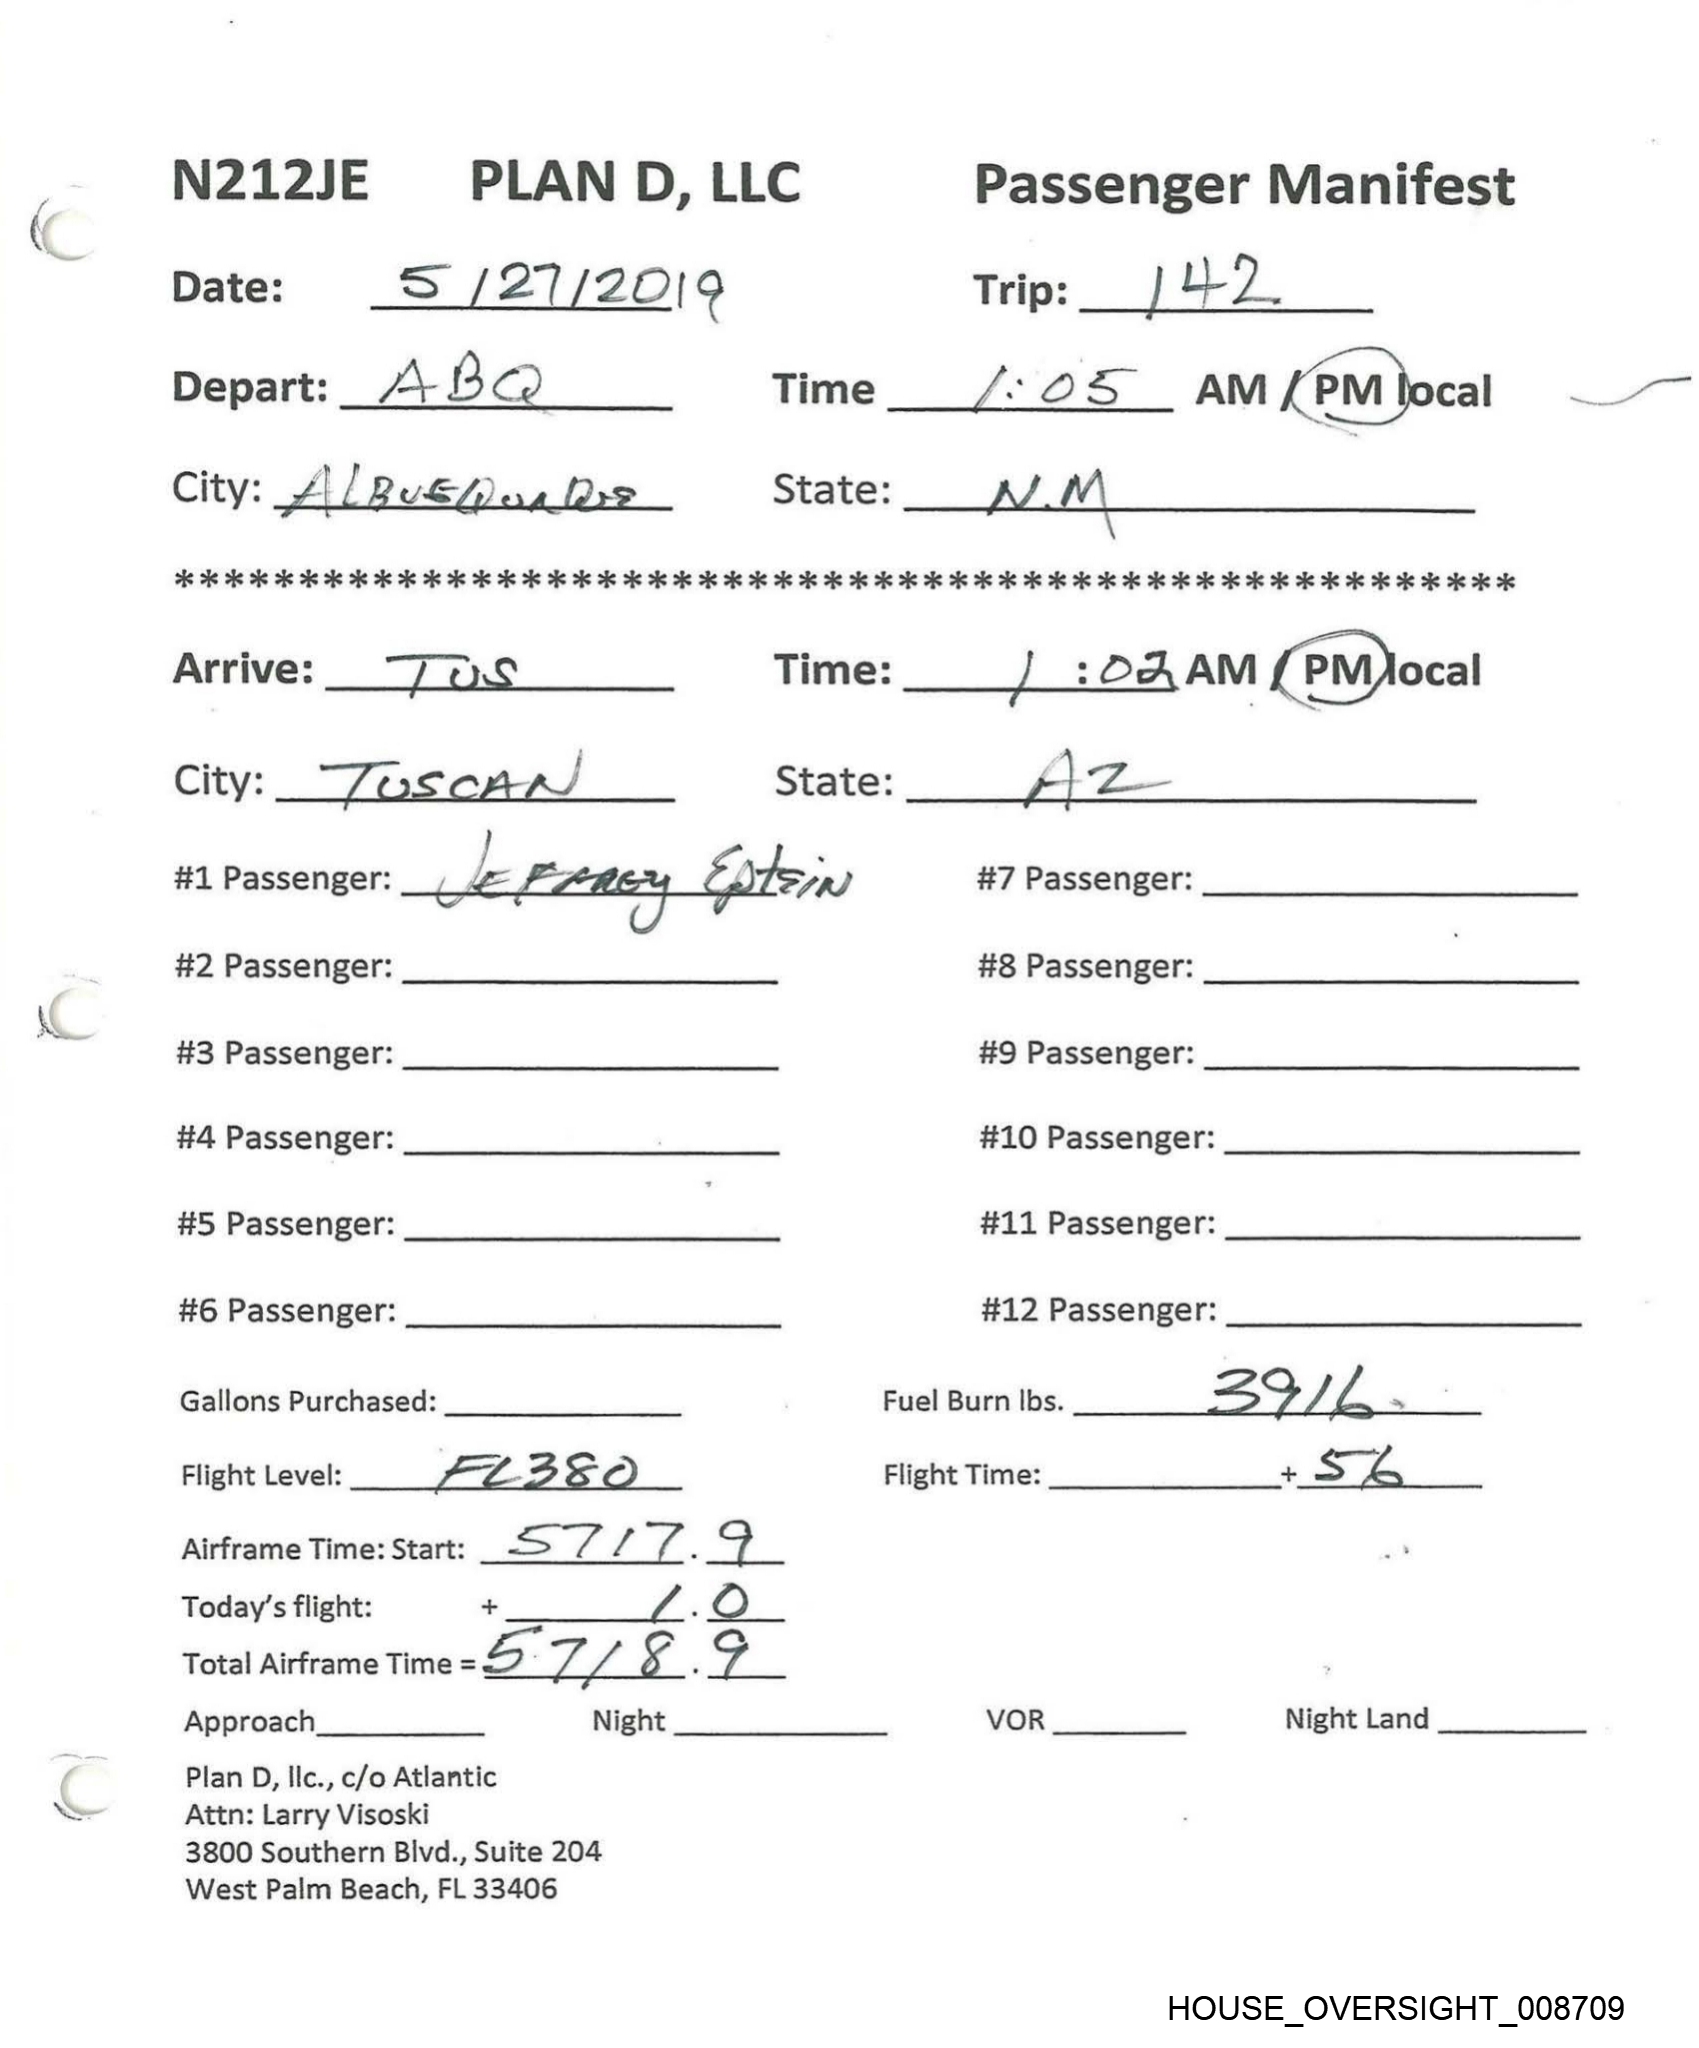 N212JE PLAN D, LLC Passenger Manifest
Date: 5/27/2019 Trip: 142
Depart: ABQ Time 1:05 AM / PM local
City: ALBUEQURQUE State: N.M
******************************************************
Arrive: TUS Time: 1:02 AM / PM local
City: TUSCAN State: AZ
#1 Passenger: JEFFREY Eptein #7 Passenger:
#2 Passenger: #8 Passenger:
#3 Passenger: #9 Passenger:
#4 Passenger: #10 Passenger:
#5 Passenger: #11 Passenger:
#6 Passenger: #12 Passenger:
Gallons Purchased: Fuel Burn lbs. 3916
Flight Level: FL380 Flight Time: + 56
Airframe Time: Start: 5717.9
Today's flight: + 1.0
Total Airframe Time = 5718.9
Approach Night VOR Night Land
Plan D, llc., c/o Atlantic
Attn: Larry Visoski
3800 Southern Blvd., Suite 204
West Palm Beach, FL 33406
HOUSE_OVERSIGHT_008709